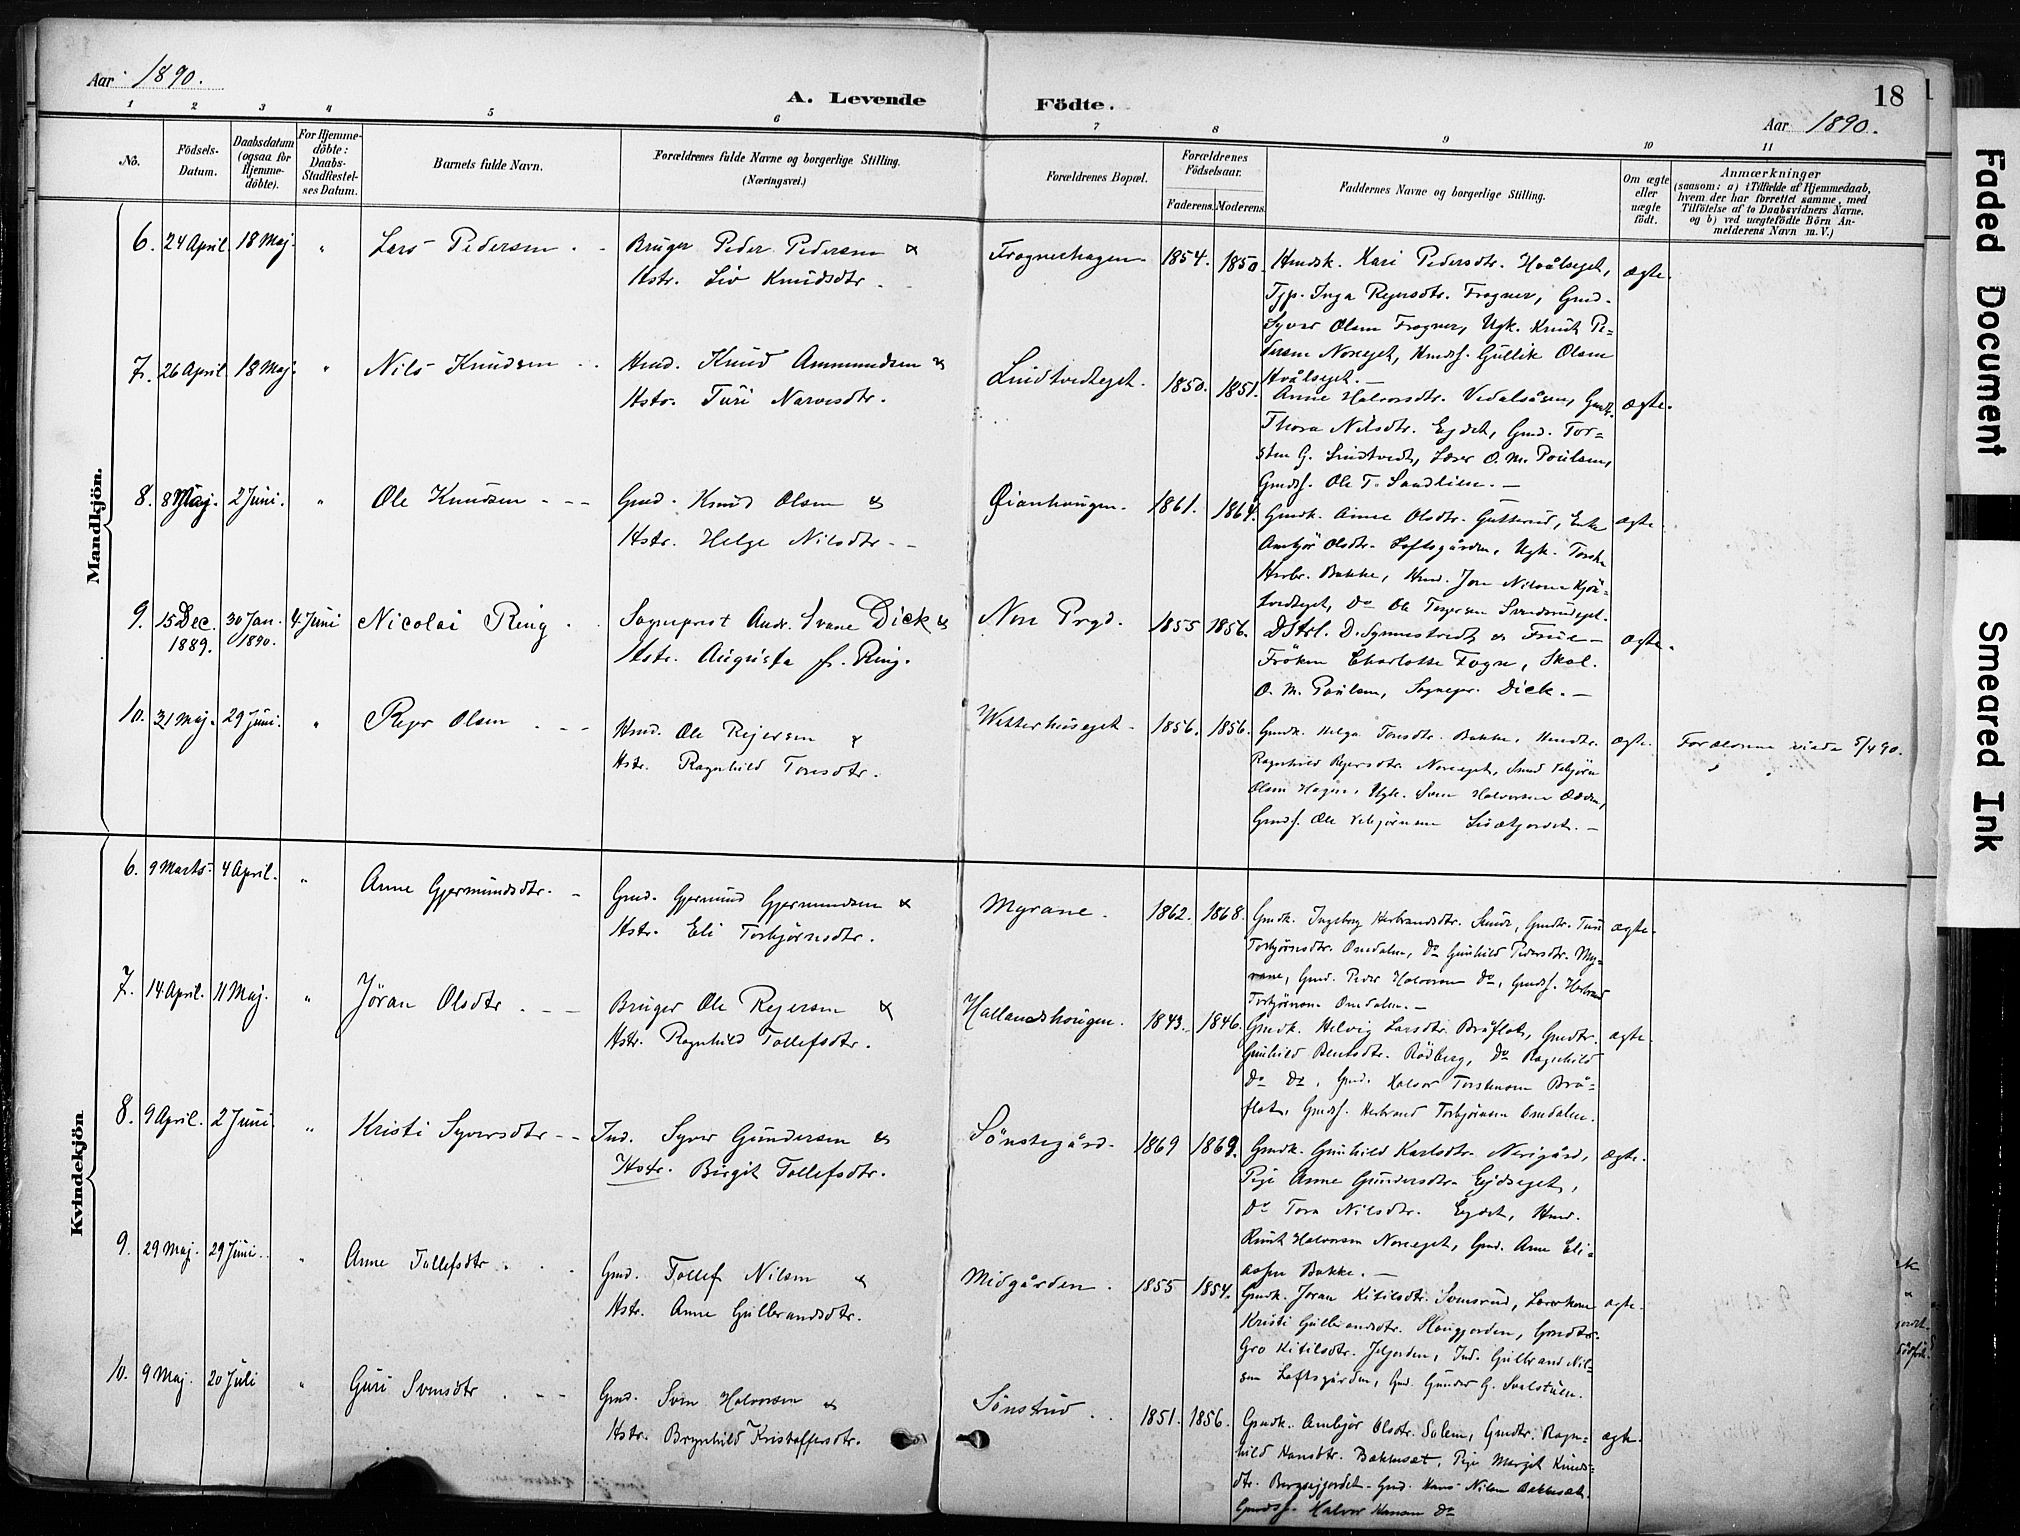 Aar 1890.
A. Levende Födte.
18
Aar 1890.
1 2 3 4 5 6 7 8 9 10 11
No.
Födsels-Datum.
Daabsdatum (ogsaa for Hjemme-döbte).
For Hjemme-döbte: Daabs-Stadfæstel-ses Datum.
Barnets fulde Navn.
Forældrenes fulde Navne og borgerlige Stilling.
(Næringsvei.)
Forældrenes Bopæl.
Forældrenes Födselsaar.
Faderens. Moderens.
Faddernes Navne og borgerlige Stilling.
Om ægte eller uægte födt.
Anmærkninger
(saasom: a) i Tilfælde af Hjemmedaab,
hvem der har forrettet samme, med
Tilföielse af to Daabsvidners Navne,
og b) ved uægtefödte Börn An-
melderens Navn m. V.)
Mandkjön.
6. 24 April 18 Maj. " Lars Pedersen Bruger Peder Pedersen &
Hstr. Liv Knudsdtr.
Frognerhagen 1854. 1850. Kari Pedersdtr. Hvålseget, ægte
Inga Rejersdtr. Frogner, Gmd.
Syver Olsen Frogner, Ugk. Knut Pe-
dersen Noreeget, Gullik Olsen
Hvålseget.
7. 26 April 18 Maj. " Nils Knudsen Hmd. Knud Ammundsen &
Hstr. Turi Narvesdtr.
Lindtvedteget. 1850. 1851. Anne Halvorsdtr. ægte.
Thora Nilsdtr. Gmd. Tor-
sten G. Lindtvedt, O. M. Poulsen,
Ole T. Sandlien.
8. 8 Maj. 2 Juni. " Ole Knudsen Gmd. Knud Olsen &
Hstr. Helge Nilsdtr.
Øianhougen. 1861. 1864. Gmdk. Anne Olsdtr. Gutterud, Enke ægte
Ambjör Olsdtr. Loftsgården, Ugk.
Bakke, Hmd. Jon Nilsen
Do Ole
9. 15 Dec. 1889. 30 Jan. 1890. 4 Juni Nicolai Ring Sogneprest Andr. Svane Dick &
Hstr. Augusta f. Ring.
Nore Prgd. 1855 1856. D. Synnestvedt & Frue ægte.
Fröken Charlotte Fogne, Skol.
O. M. Poulsen, Sognepr. Dick.
10. 31 Maj. 29 Juni. " Rejer Olsen Hmd. Ole Rejersen &
Hstr. Ragnhild Toresdtr.
Wetterhuseget 1856. 1856. Gmdk. Helga Toresdtr. Bakke, ægte. Forældrene viede 5/4 90.
Ragnhild Rejersdtr. Noreeget,
Olsen Hagen, Ugk. Sven Halvorsen
Gmds. Ole Vebjørnsen
Kvindekjön
6. 9 Marts 4 April. " Anne Gjermundsdtr. Gmd. Gjermund Gjermundsen &
Hstr. Eli Torbjørnsdtr.
Myrane. 1862. 1868. Gmdk. Ingeborg Herbrandsdtr. Gmdtr. Turi ægte.
Torbjørnsdtr. Omdalen, Do Gunhild Pedersdtr. My-
rane, Gmd. Peder Halvorsen Do, Gmds. Herbrand
Torbjørnsen Omdalen.
7. 14 April. 11 Maj. " Jøran Olsdtr Bruger Ole Rejersen &
Hstr. Ragnhild Tollefsdtr.
Hallandshougen. 1843. 1846. Gmdk. Helvig Larsdtr. Bråflat, Gmdtr. ægte.
Gunhild Bentsdtr. Rödberg, Do Ragnhild
Do Do, Gmd. Halvor Torstensen Brå-
flat, Gmds. Herbrand Torbjørnsen Omdalen.
8. 9 April. 2 Juni " Kristi Syversdtr Ind. Syver Gundersen &
Hstr. Birgit Tollefsdtr.
Sönstegård. 1869 1869. Gmdk. Gunhild Karlsdtr. Nerigård, ægte.
Pige Anne Gundersdtr. Ejdseget,
Do Tora Nilsdtr. Hmd.
Knut Halvorsen Noreeget, Gmd. Arne Eli-
assen Bakke.
9. 29 Maj. 29 Juni. " Anne Tollefsdtr. Gmd. Tollef Nilsen &
Hstr. Anne Gulbrandsdtr.
Midgården. 1855 1854. Gmdk. Jøran Kitilsdtr. Svensrud, ægte.
Kristi Gulbrandsdtr. Gmdtr.
Gro Kitilsdtr. Ind. Gulbrand Nil-
sen Loftsgården, Gmd. Gunder G.
10. 9 Maj. 20 Juli " Guri Svensdtr Gmd. Sven Halvorsen &
Hstr. Brynhild Kristoffersdtr.
Sönstrud 1851. 1856. Gmdk. Ambjør Olsdtr. Solem, Gmdtr. Ragn- ægte.
hild Hansdtr. Bakkesæt, Pige Margit Knuds-
dtr. Gmd. Hans Nilsen Bakkesæt,
Gmds. Halvor Hansen Do
Faded Document
Smeared Ink